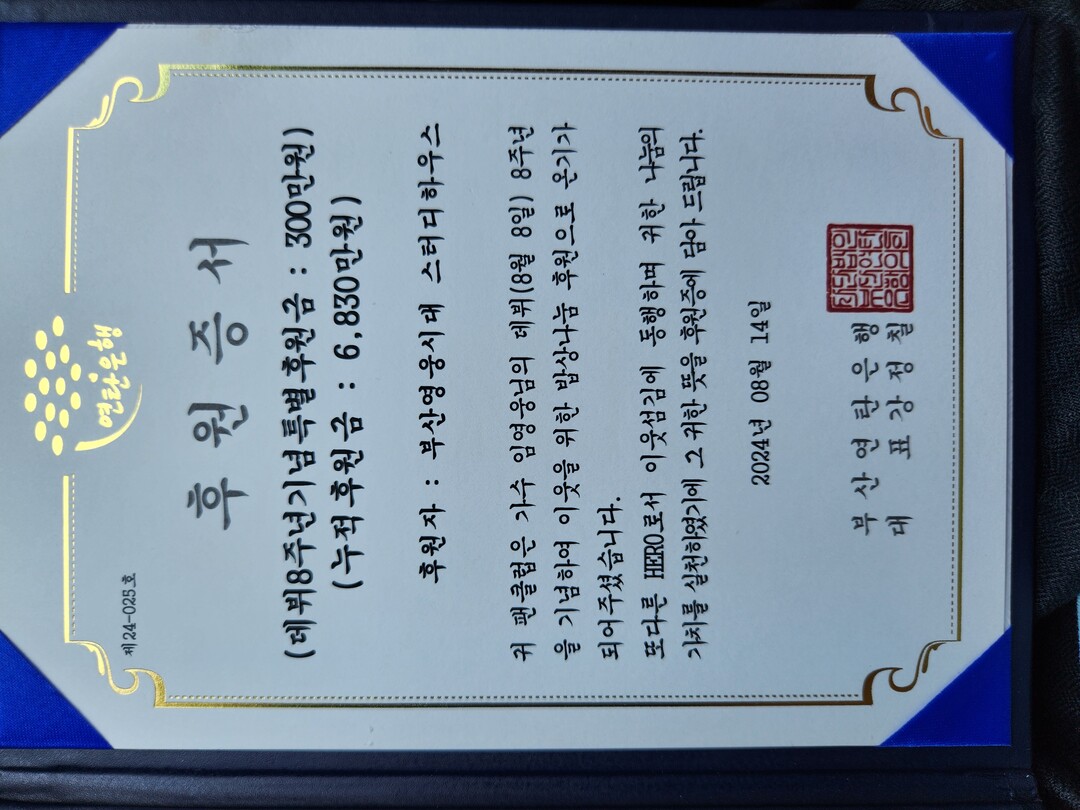 연탄은행
제24-025호
후원증서
(데뷔8주년기념특별후원금 : 300만원)
(누적후원금 : 6,830만원)
후원자 : 부산영웅시대 스터디하우스
귀 팬클럽은 가수 임영웅님의 데뷔(8월 8일) 8주년
을 기념하여 이웃을 위한 밥상나눔 후원으로 온기가
되어주셨습니다.
또다른 HERO로서 이웃섬김에 동행하며 귀한 나눔의
가치를 실천하였기에 그 귀한 뜻을 후원증에 담아 드립니다.
2024년 08월 14일
부산연탄은행
대표 강정칠